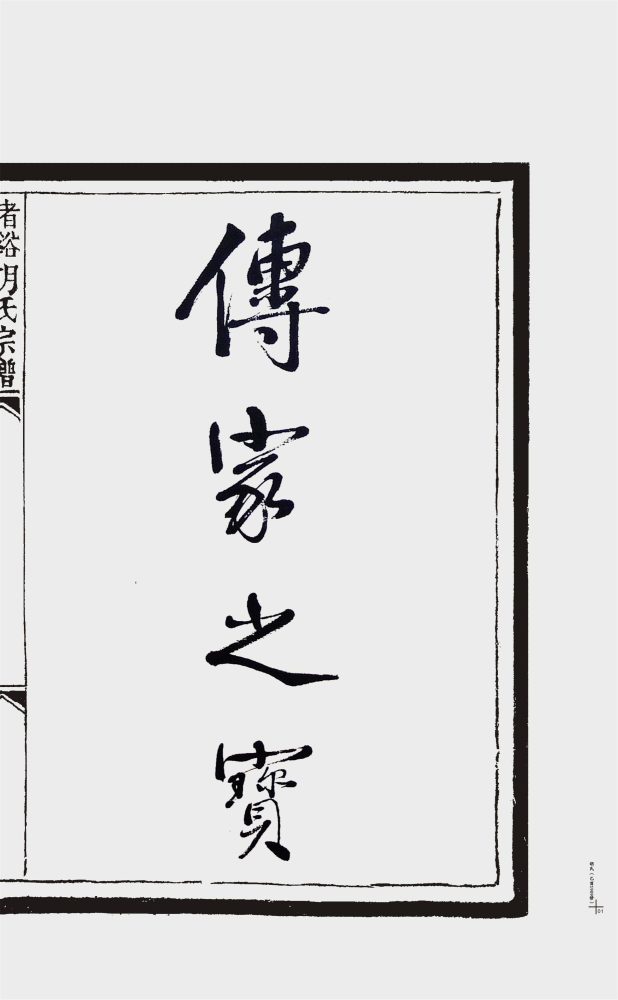 傳家之寶
渚谿胡氏宗譜
01